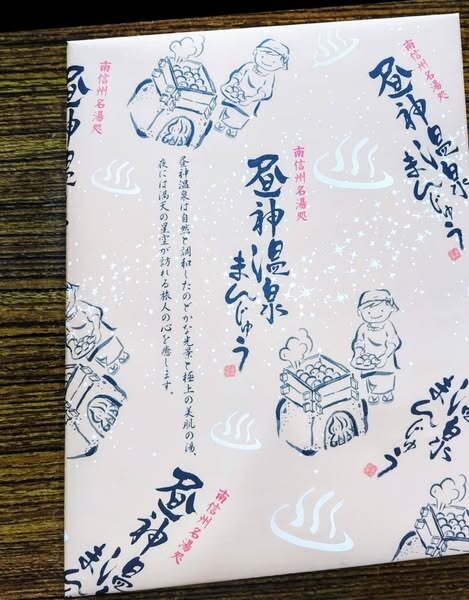 南信州名湯処
昼神温泉
まんじゅう
南信州名湯処
昼神温泉
まんじゅう
南信州名湯処
昼神温泉
昼神温泉は自然と調和したのどかな光景と極上の美肌の湯、
夜には満天の星空が訪れる旅人の心を癒します。
まんじゅう
南信州名湯処
昼神温
まん